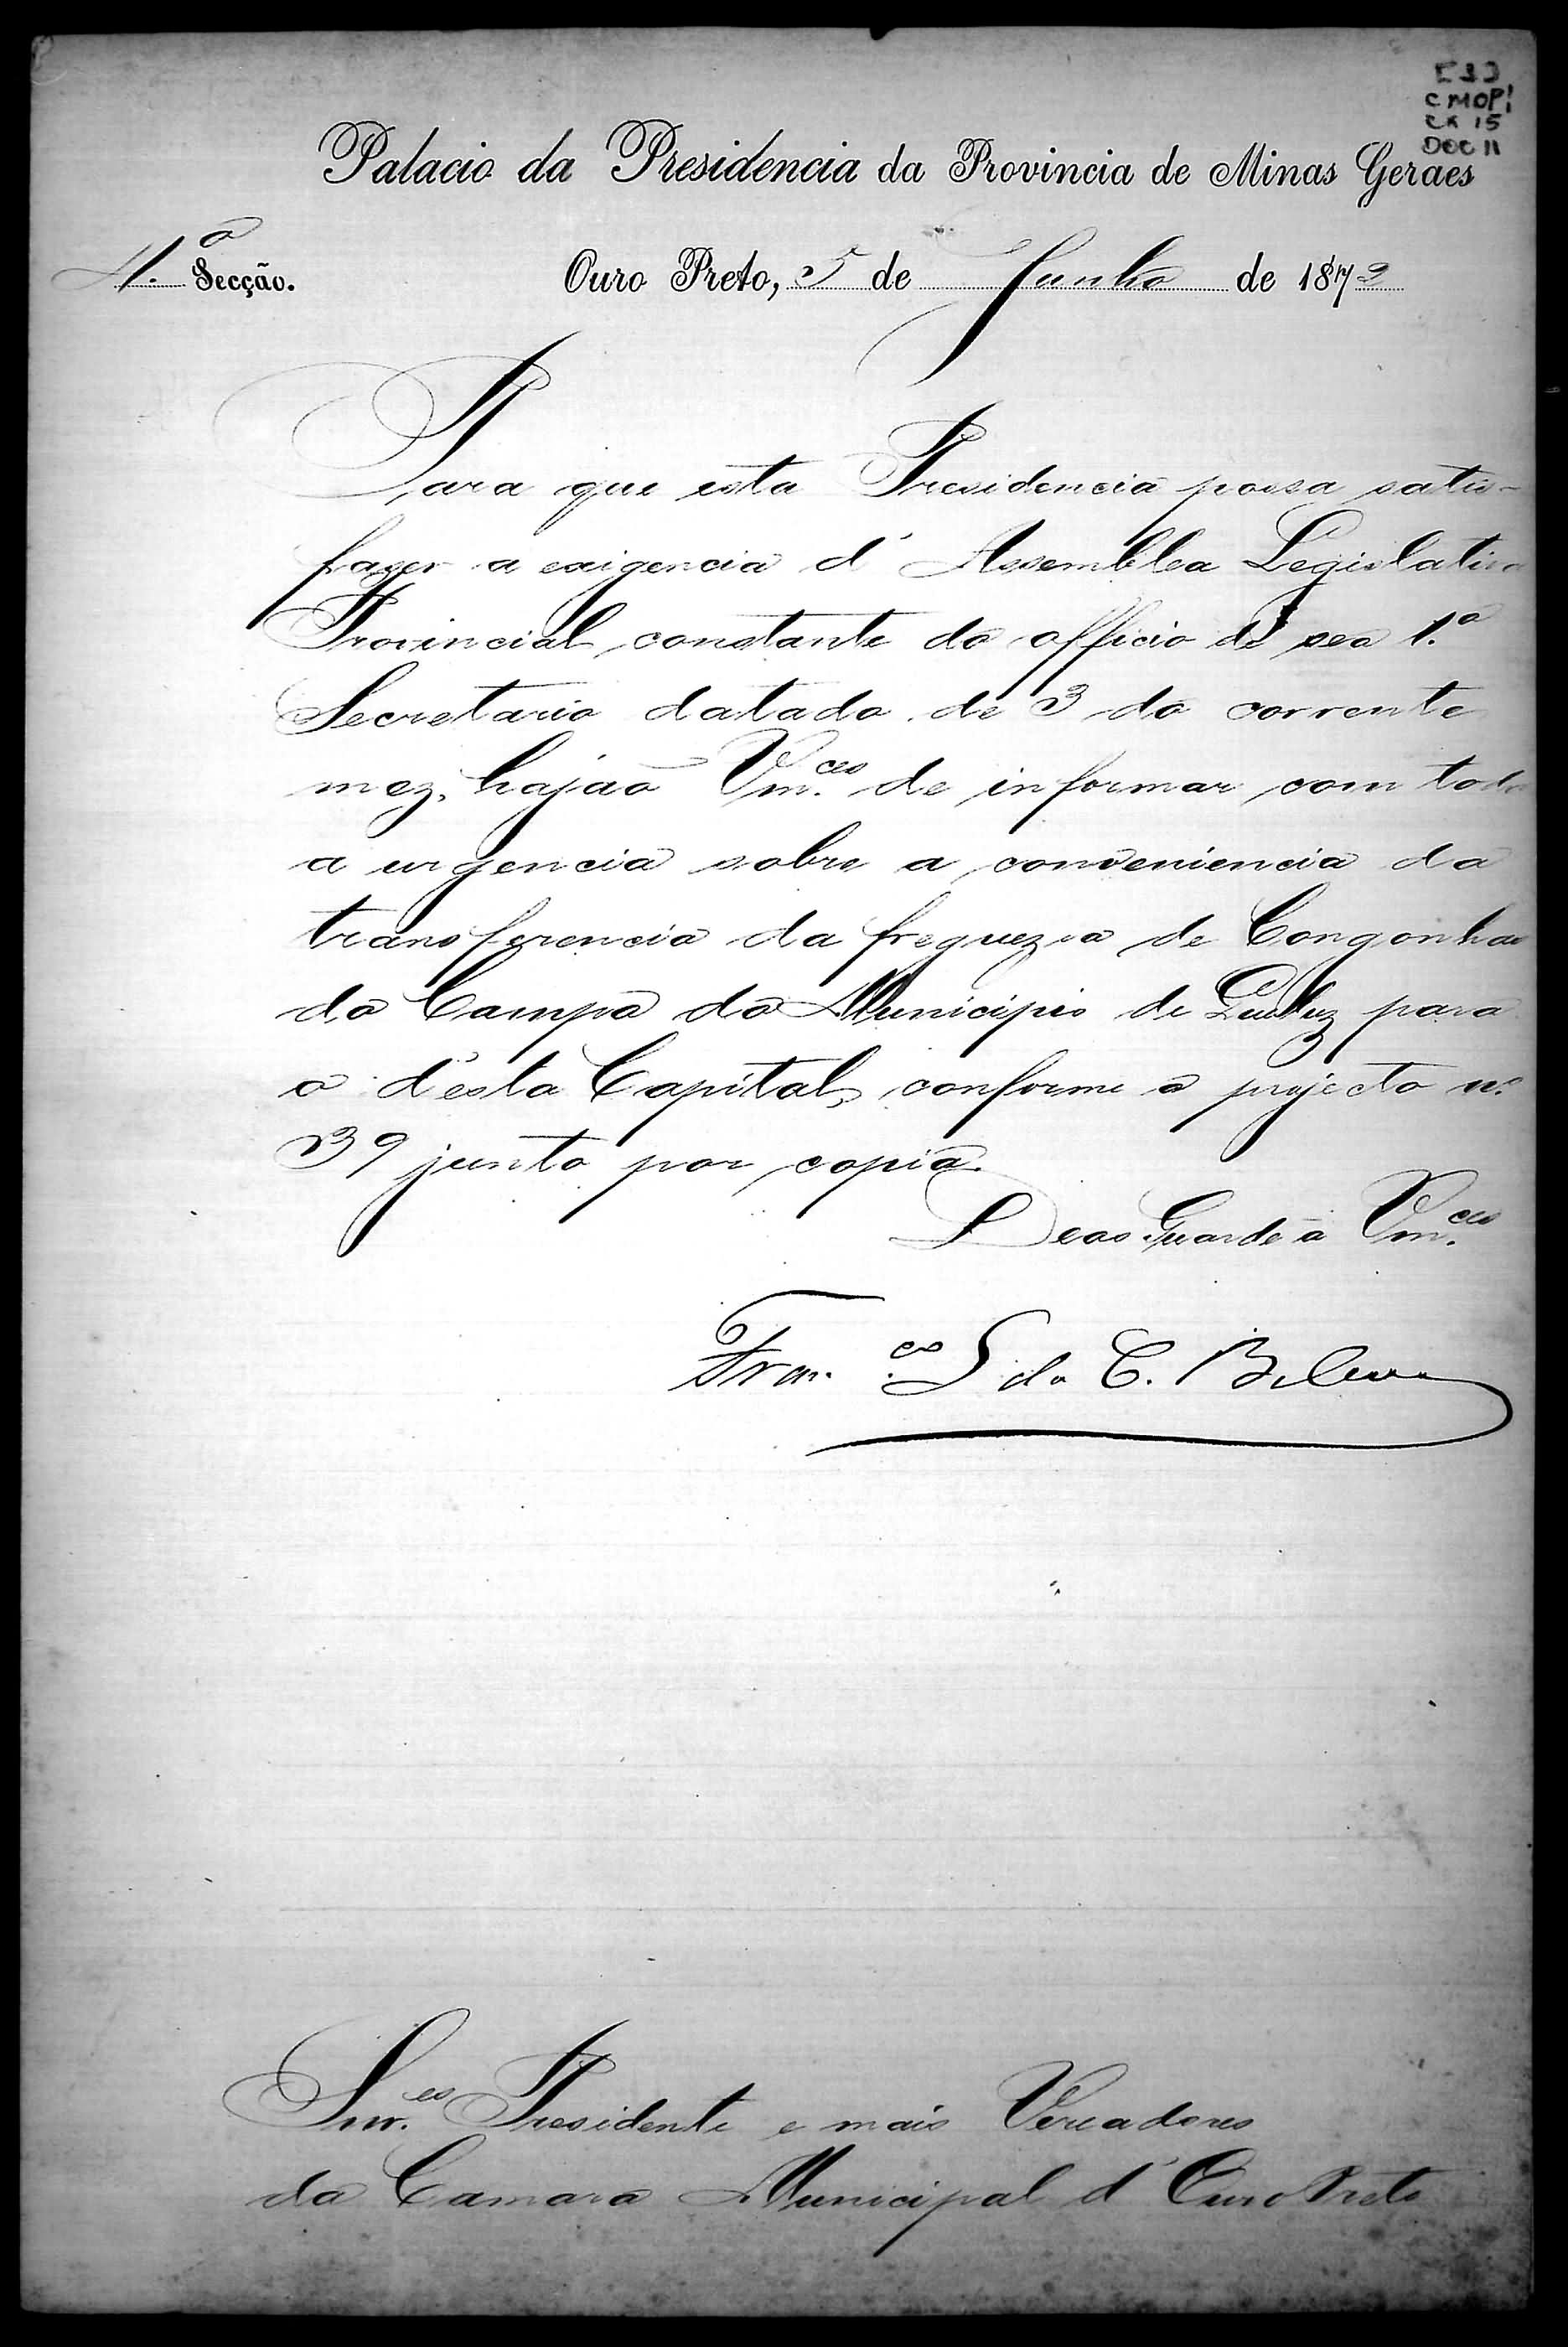 CMOP
CX 15
DOC 11
Palacio da Presidencia da Provincia de Minas Geraes
4.ª Secção.
Ouro Preto, 5 de Junho de 1872
Para que esta Presidencia possa satis-
fazer a exigencia d'Assemblea Legislativa
Provincial, constante do officio de seo 1.º
Secretario datado de 3 do corrente
mez, hajão Vm.ces de informar com toda
a urgencia sobre a conveniencia da
transferencia da freguezia de Congonhas
do Campo do Municipio de Queluz para
o d'esta Capital, conforme o projecto n.º
39 junto por copia.
Deos Guarde a Vm.ces
Fran.co L da C. Belem
Snr.es Presidente e mais Vereadores
da Camara Municipal d'Ouro Preto